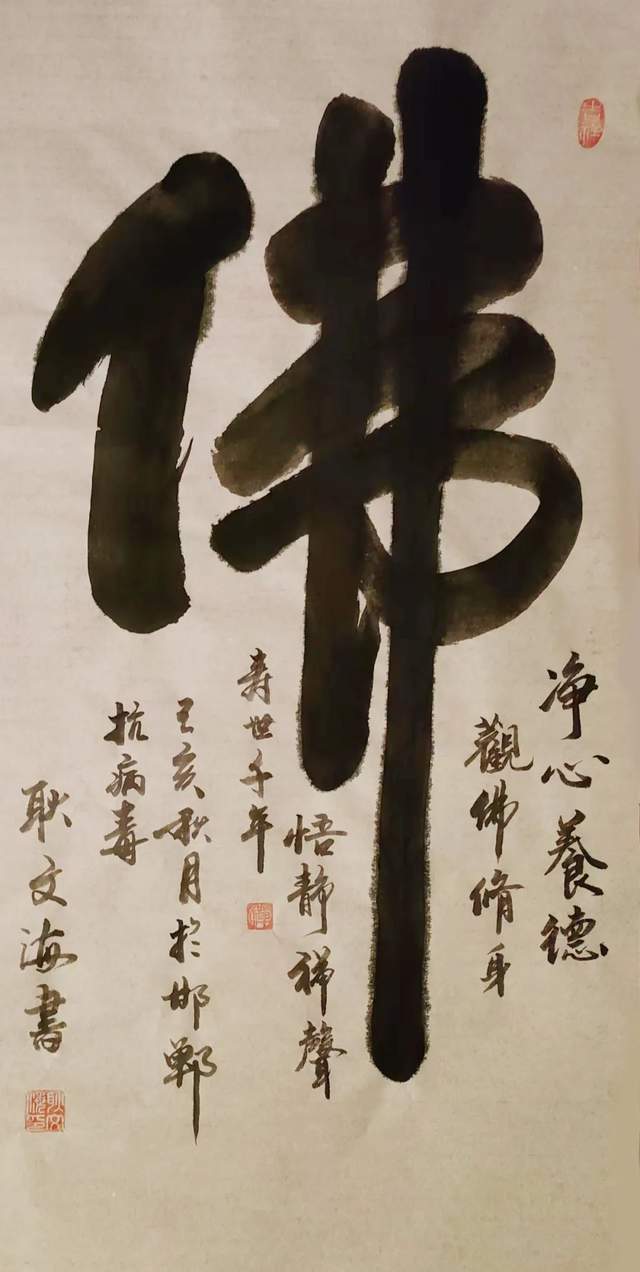 佛
净心養德
觀佛脩身
悟静禅聲
寿世千年
亥秋月於邯郸
抗病毒
耿文海書